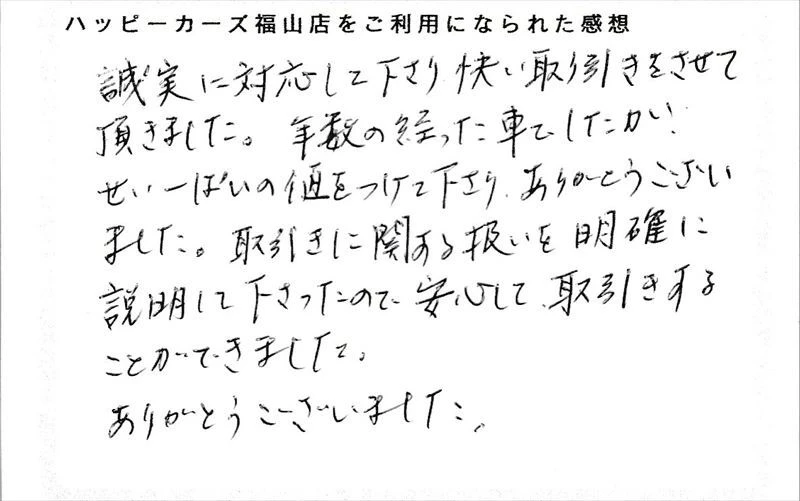 ハッピーカーズ福山店をご利用になられた感想
誠実に対応して下さり、快い取引きをさせて
頂きました。年数の経った車でしたが、
せいいっぱいの値をつけて下さり、ありがとうござい
ました。取引きに関する扱いを明確に
説明して下さったので、安心して、取引きする
ことができました。
ありがとうございました。